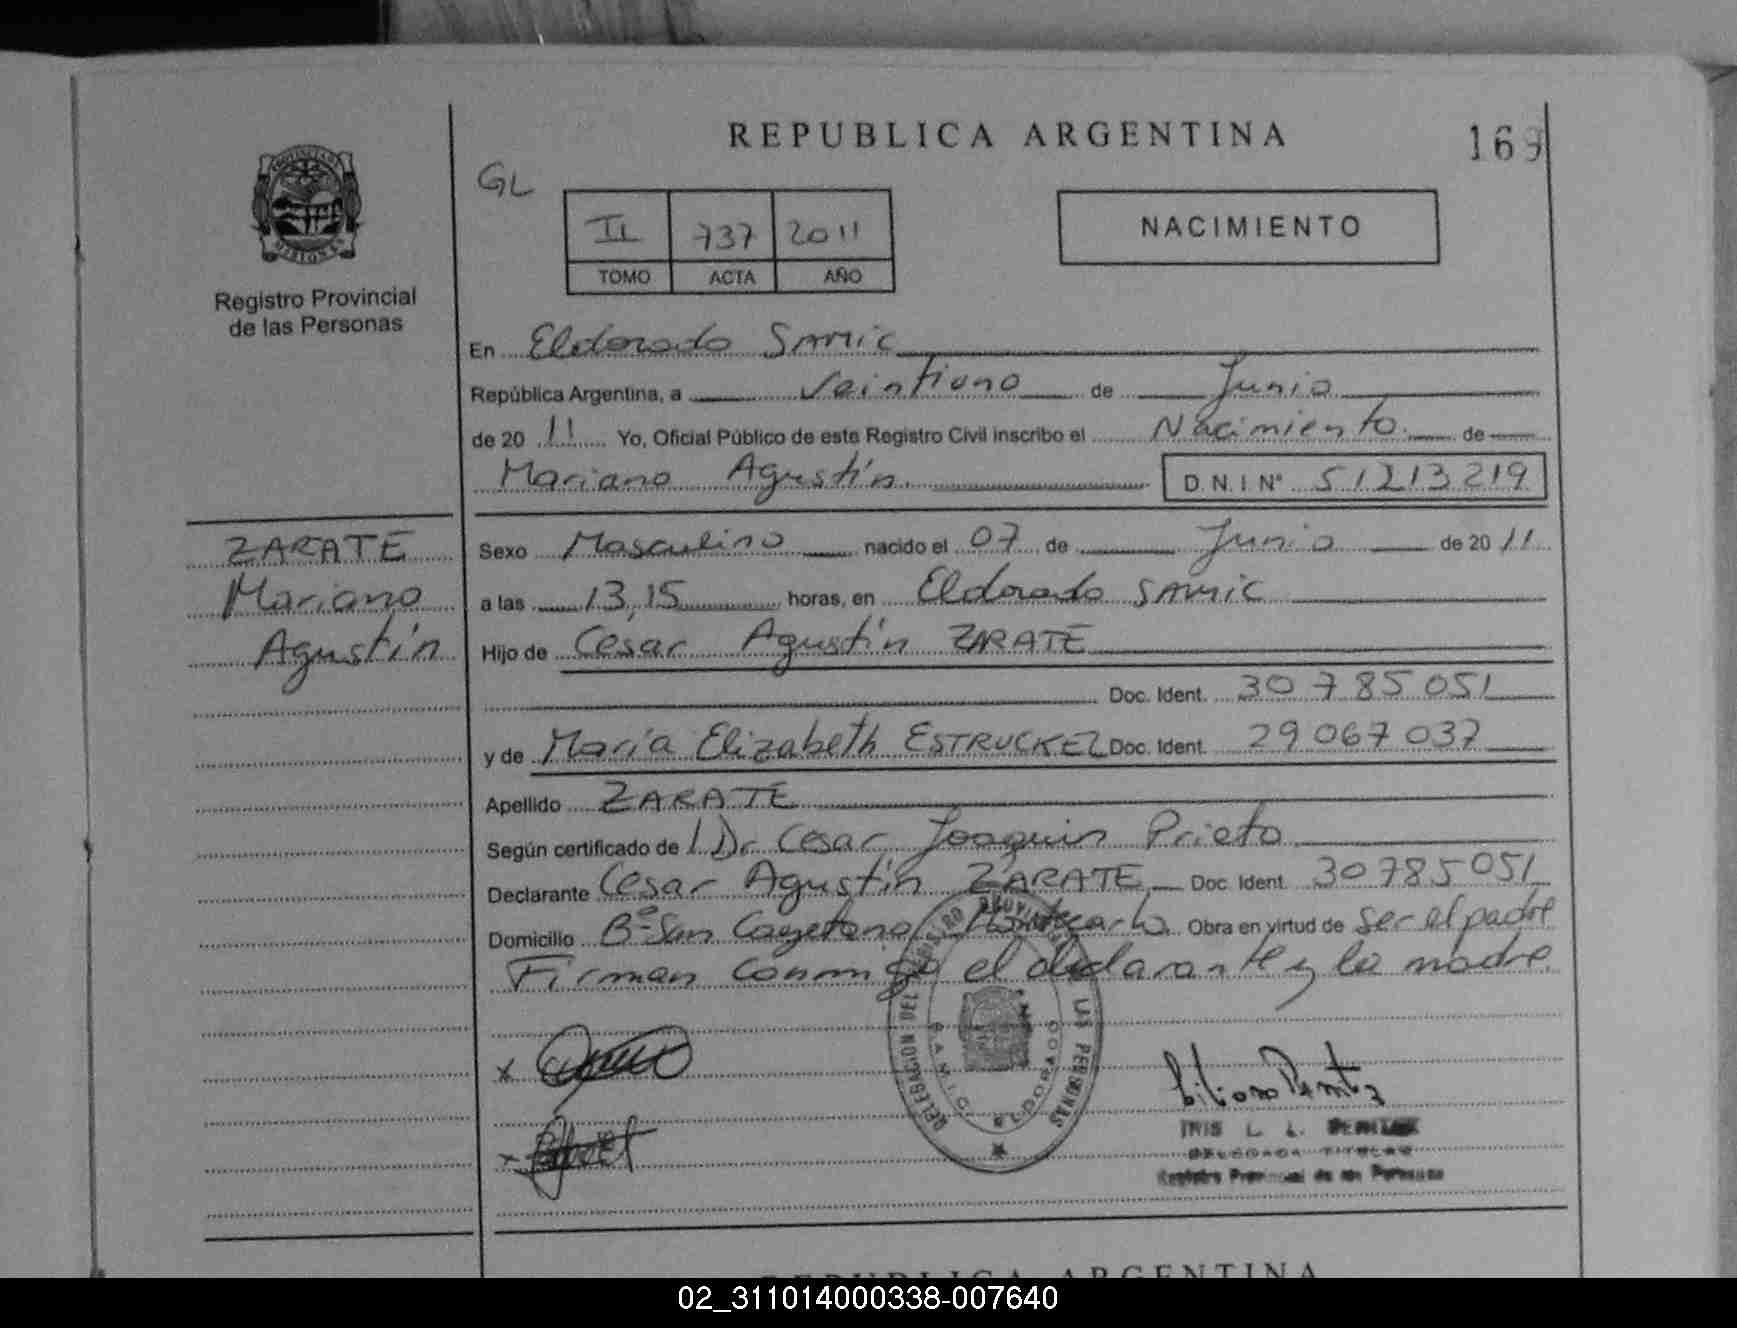 REPUBLICA ARGENTINA
169
GL
II 737 2011
TOMO ACTA AÑO
NACIMIENTO
PROVINCIA DE MISIONES
Registro Provincial
de las Personas
En Eldorado SAMIC
República Argentina, a Veintiuno de Junio
de 2011 Yo, Oficial Público de este Registro Civil inscribo el Nacimiento de
Mariano Agustín D.N.I Nº 51213219
ZARATE
Mariano
Agustín
Sexo Masculino nacido el 07 de Junio de 2011
a las 13,15 horas, en Eldorado SAMIC
Hijo de César Agustín ZARATE
Doc. Ident. 30785051
y de María Elizabeth ESTRUCKEL Doc. Ident. 29067037
Apellido ZARATE
Según certificado de 1 Dr Cesar Joaquin Prieto
Declarante César Agustín ZARATE Doc. Ident 30785051
Domicilio Bº San Cayetano Montecarlo Obra en virtud de ser el padre
Firman conmigo el declarante y la madre
DELEGACION DEL REGISTRO PROVINCIAL DE LAS PERSONAS
S.A.M.I.C. ELDORADO
x
x
IRIS L. L.
DELEGADA TITULAR
Registro Provincial de las Personas
REPUBLICA ARGENTINA
02_311014000338-007640